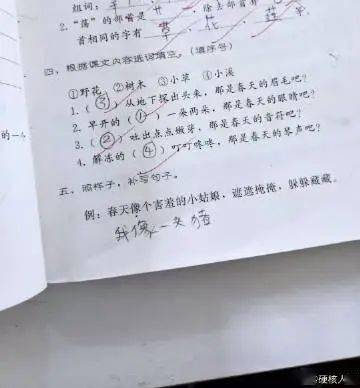 组词：
2."荡"的部首是 艹 除去部首有
首相同的字有 草 花 莲 等。
四、根据课文内容选词填空。(填序号)
①野花 ②树木 ③小草 ④小溪
1.(③)从地下探出头来，那是春天的眉毛吧？
2.早开的(①)一朵两朵，那是春天的眼睛吧？
3.(②)吐出点点嫩芽，那是春天的音符吧？
4.解冻的(④)叮叮咚咚，那是春天的琴声吧？
的一
五、照样子，补写句子。
例：春天像个害羞的小姑娘，遮遮掩掩，躲躲藏藏。
我像一头猪
硬核人